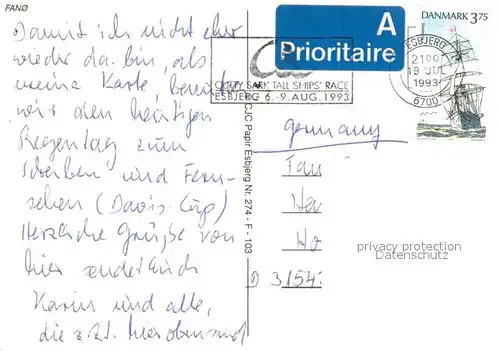 FANØ
Damit ich nicht eher
wieder da bin, als
meine Karte benutzen
wir den heutigen
Regentag zum
Schreiben und Fern-
sehen (Davis-Cup)
Herzliche Grüße von
hier senden Euch
Karin und alle,
die z.Zt. hier oben sind
CJC Papir Esbjerg Nr. 274 - F - 103
A
Prioritaire
CUTTY SARK TALL SHIPS' RACE
ESBJERG 6.-9. AUG. 1993
ESBJERG
2100
19 JUL
1993
6700
DANMARK 3.75
Germany
Fam
Her
Ho
D 3154
privacy protection
DANMARK_Europa